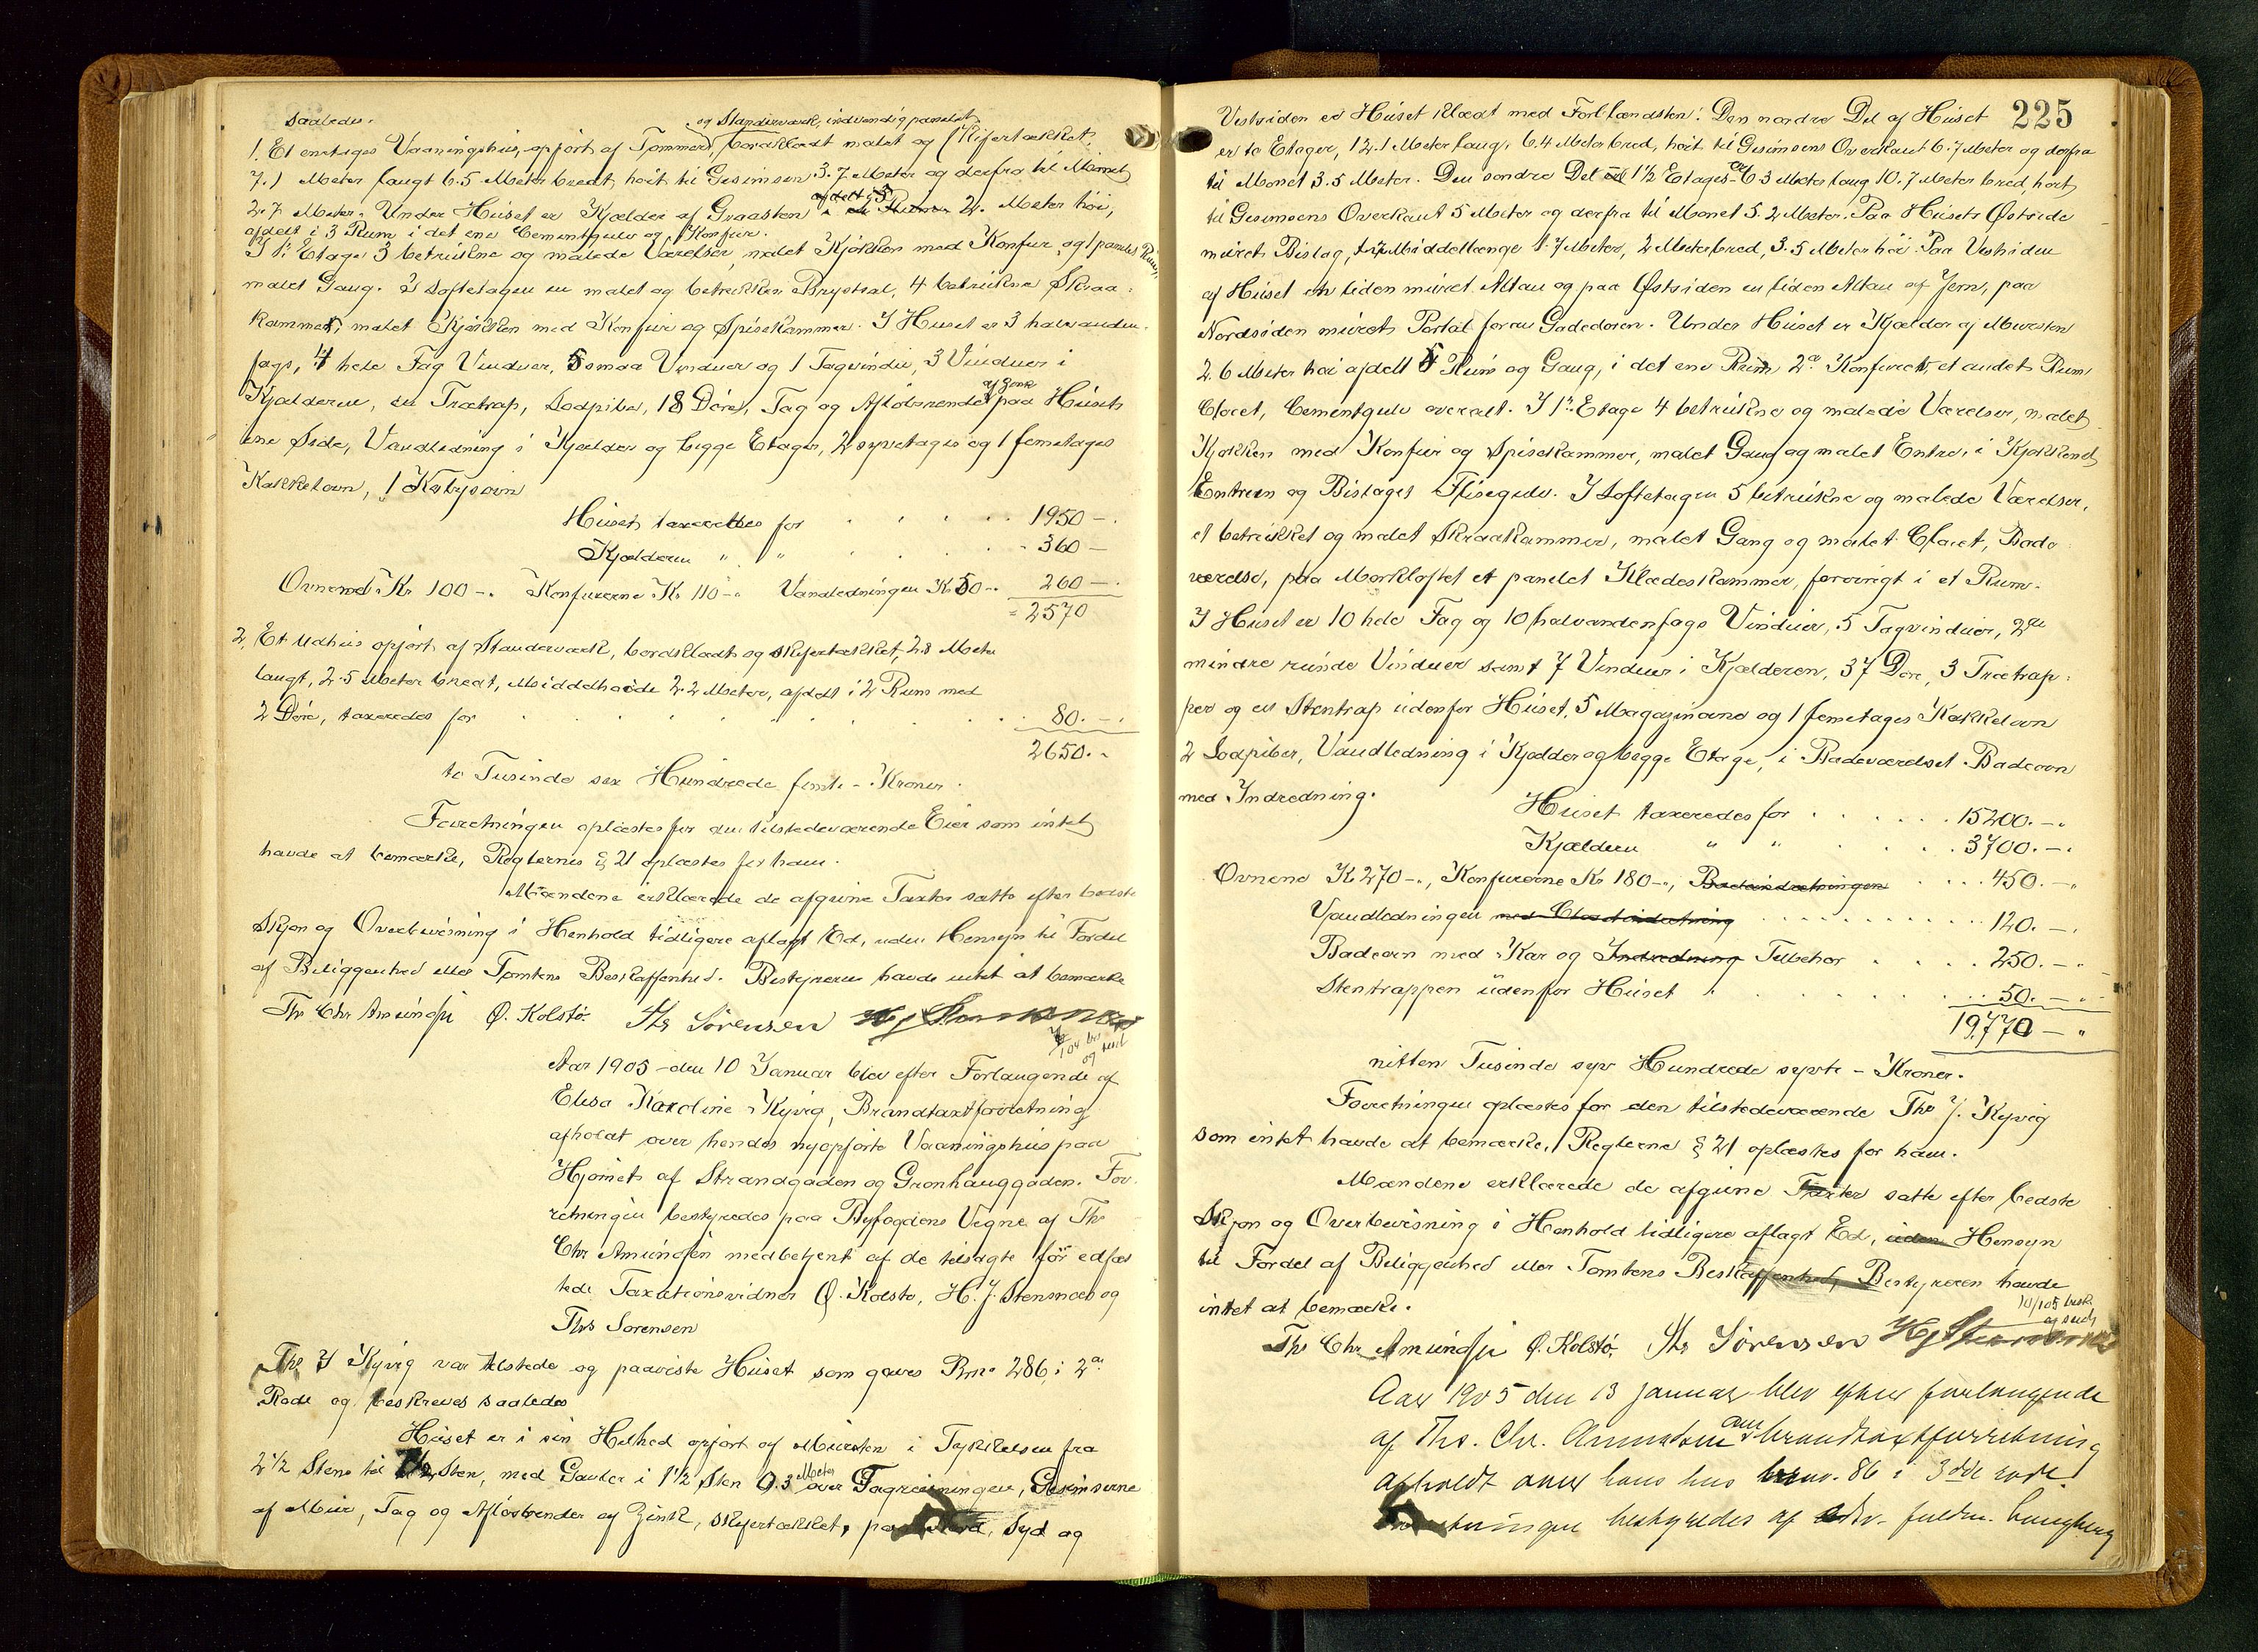 saaledes.
og Standerværk, indvendig panelet
1. Et enetages Vaaningshus, opført af Tømmer, bordklædt malet og skifertækket,
7.1 Meter langt 6.5 Meter bredt, høit til Gesimsen 3.7 Meter og derfra til Mønet
2.7 Meter. Under Huset er Kjælder af Graasten 2. Meter høi,
afdelt i 3 Rum i det ene Cementgulv og Konfur.
I 1ste Etage 3 betrukne og malede Værelser, malet Kjøkken med Konfur, og 1 panelet Rum,
malet Gang. I Loftetagen en malet og betrukken Brystsal, 4 betrukne Skraa-
kammer, malet Kjøkken med Konfur og Spisekammer. I Huset er 3 halvanden-
fags, 4 hele Fag Vinduer, 5 smaa Vinduer og 1 Tagvindu, 3 Vinduer i
Kjælderen, en Trætrap, Lodpibe, 18 Døre, Tag og Afløbsrender af Zink paa Husets
ene Side, Vandledning i Kjælder og begge Etager, 2 syvetages og 1 femetages
Kakkelovn, 1 Kabysovn
Huset taxeredes for 1950 -
Kjælderen " " 360 -
Ovnene Kr 100 -. Konfurerne Kr 110 -. Vandledningen Kr 50 -. 260 -.
2570
2, Et Udhus opført af Standerværk, bordklædt og skifertækket, 2.8 Meter
langt, 2.5 Meter bredt, Middelhøide 2.2 Meter, afdelt i 2 Rum med
2 Døre, taxeredes for 80. -.
2650. -
to Tusinde sex Hundrede femti - Kroner.
Forretningen oplæstes for den tilstedeværende Eier som intet
havde at bemærke, Reglernes § 21 oplæstes for ham.
Mændene erklærede de afgivne Taxter satte efter bedste
Skjøn og Overbevisning i Henhold tidligere aflagt Ed, uden Hensyn til Fordel
af Beliggenhed eller Tomtens Beskaffenhed. Bestyreren havde intet at bemærke
Ths Chr Amundsen Ø. Kolstø. Ths Sørensen H J Stensnæs
Aar 1905 - den 10 Januar blev efter Forlangende af
Elisa Karoline Kyvig, Brandtaxtforretning
afholdt over hendes nyopførte Vaaningshus paa
Hjørnet af Strandgaden og Grønhauggaden. For-
retningen bestyredes paa Byfogdens Vegne af Ths
Chr Amundsen medbetjent af de tilsagte før edfæs
tede Taxationsvidner Ø. Kolstø, H. J. Stensnæs og
Ths Sørensen
Ths J Kyvig var tilstede og paaviste Huset som gaves Bno 286, i 2den
Rode og beskreves saaledes
Huset er i sin Helhed opført af Mursten i Tykkelsen fra
2 1/2 Stens til 1 1/2 Sten, med Gavler i 1 1/2 Sten 0.3 Meter over Tagreisningen, Gesimserne
af Mur, Tag og Afløbsrender af Zink, skifertækket, paa Nord, Syd og
225
Vestsiden er Huset klædt med Forblændsten. Den nordre Del af Huset
er to Etager, 12.1 Meter lang, 6.4 Meter bred, høit til Gesimsens Overkant 6.7 Meter og derfra
til Mønet 3.5 Meter. Den søndre Del er 1 1/2 Etages 6.3 Meter lang 10.7 Meter bred, høit
til Gesimsens Overkant 5 Meter og derfra til Mønet 5.2 Meter. Paa Husets Østside
muret Bislag, Middellænge 1.7 Meter, 2 Meter bred, 3.5 Meter høi. Paa Vestsiden
af Huset en liden muret Altan og paa Østsiden en liden Altan af Jern, paa
Nordsiden muret Portal foran Gadedøren. Under Huset er Kjælder af Mursten
2.6 Meter høi afdelt 5 Rum og Gang, i det ene Rum 2de Konfurer, et andet Rum
Closet, Cementgulv overalt. I 1ste Etage 4 betrukne og malede Værelser, malet
Kjøkken med Konfur og Spisekammer, malet Gang og malet Entre, i Kjøkkenet,
Entreen og Bislaget Flisegulv. I Loftetagen 5 betrukne og malede Værelser,
et betrukket og malet Skraakammer, malet Gang og malet Closet, Bade-
værelse, paa Mørkloftet et panelet Klædeskammer, forøvrigt i et Rum.
I Huset er 10 hele Fag og 10 halvandenfags Vinduer, 5 Tagvinduer, 2de
mindre runde Vinduer samt 7 Vinduer i Kjælderen, 37 Døre, 3 Trætrap-
per og en Stentrap udenfor Huset, 5 Magazinovne og 1 femetages Kakkelovn
2 Lodpiber, Vandledning i Kjælder og begge Etage, i Badeværelset Badeovn
med Indredning.
Huset taxeredes for 15200. -.
Kjælderen " " 3700. -.
Ovnene Kr 270 -., Konfurerne Kr 180 -., Badeindretningen 450. -.
Vandledningen med Closetindretning 120. -.
Badeovn med Kar og Indredning Tilbehør 250. -.
Stentrappen udenfor Huset 50. -
19,770 - "
nitten Tusinde syv Hundrede sytti - Kroner.
Forretningen oplæstes for den tilstedeværende Ths J. Kyvig
som intet havde at bemærke, Reglerne § 21 oplæstes for ham.
Mændene erklærede de afgivne Taxter satte efter bedste
Skjøn og Overbevisning i Henhold tidligere aflagt Ed, uden Hensyn
til Fordel af Beliggenhed eller Tomtens Beskaffenhed, Bestyreren havde
intet at bemærke.
Ths Chr Amundsen Ø. Kolstø. Ths Sørensen H J Stensnæs
Aar 1905 den 13 januar blev efter forlangende
af Ths. Chr. Amundsen brandtaxtforretning
afholdt over hans hus brno. 86 i 3die rode.
Forretningen bestyredes af fuldm. Langberg